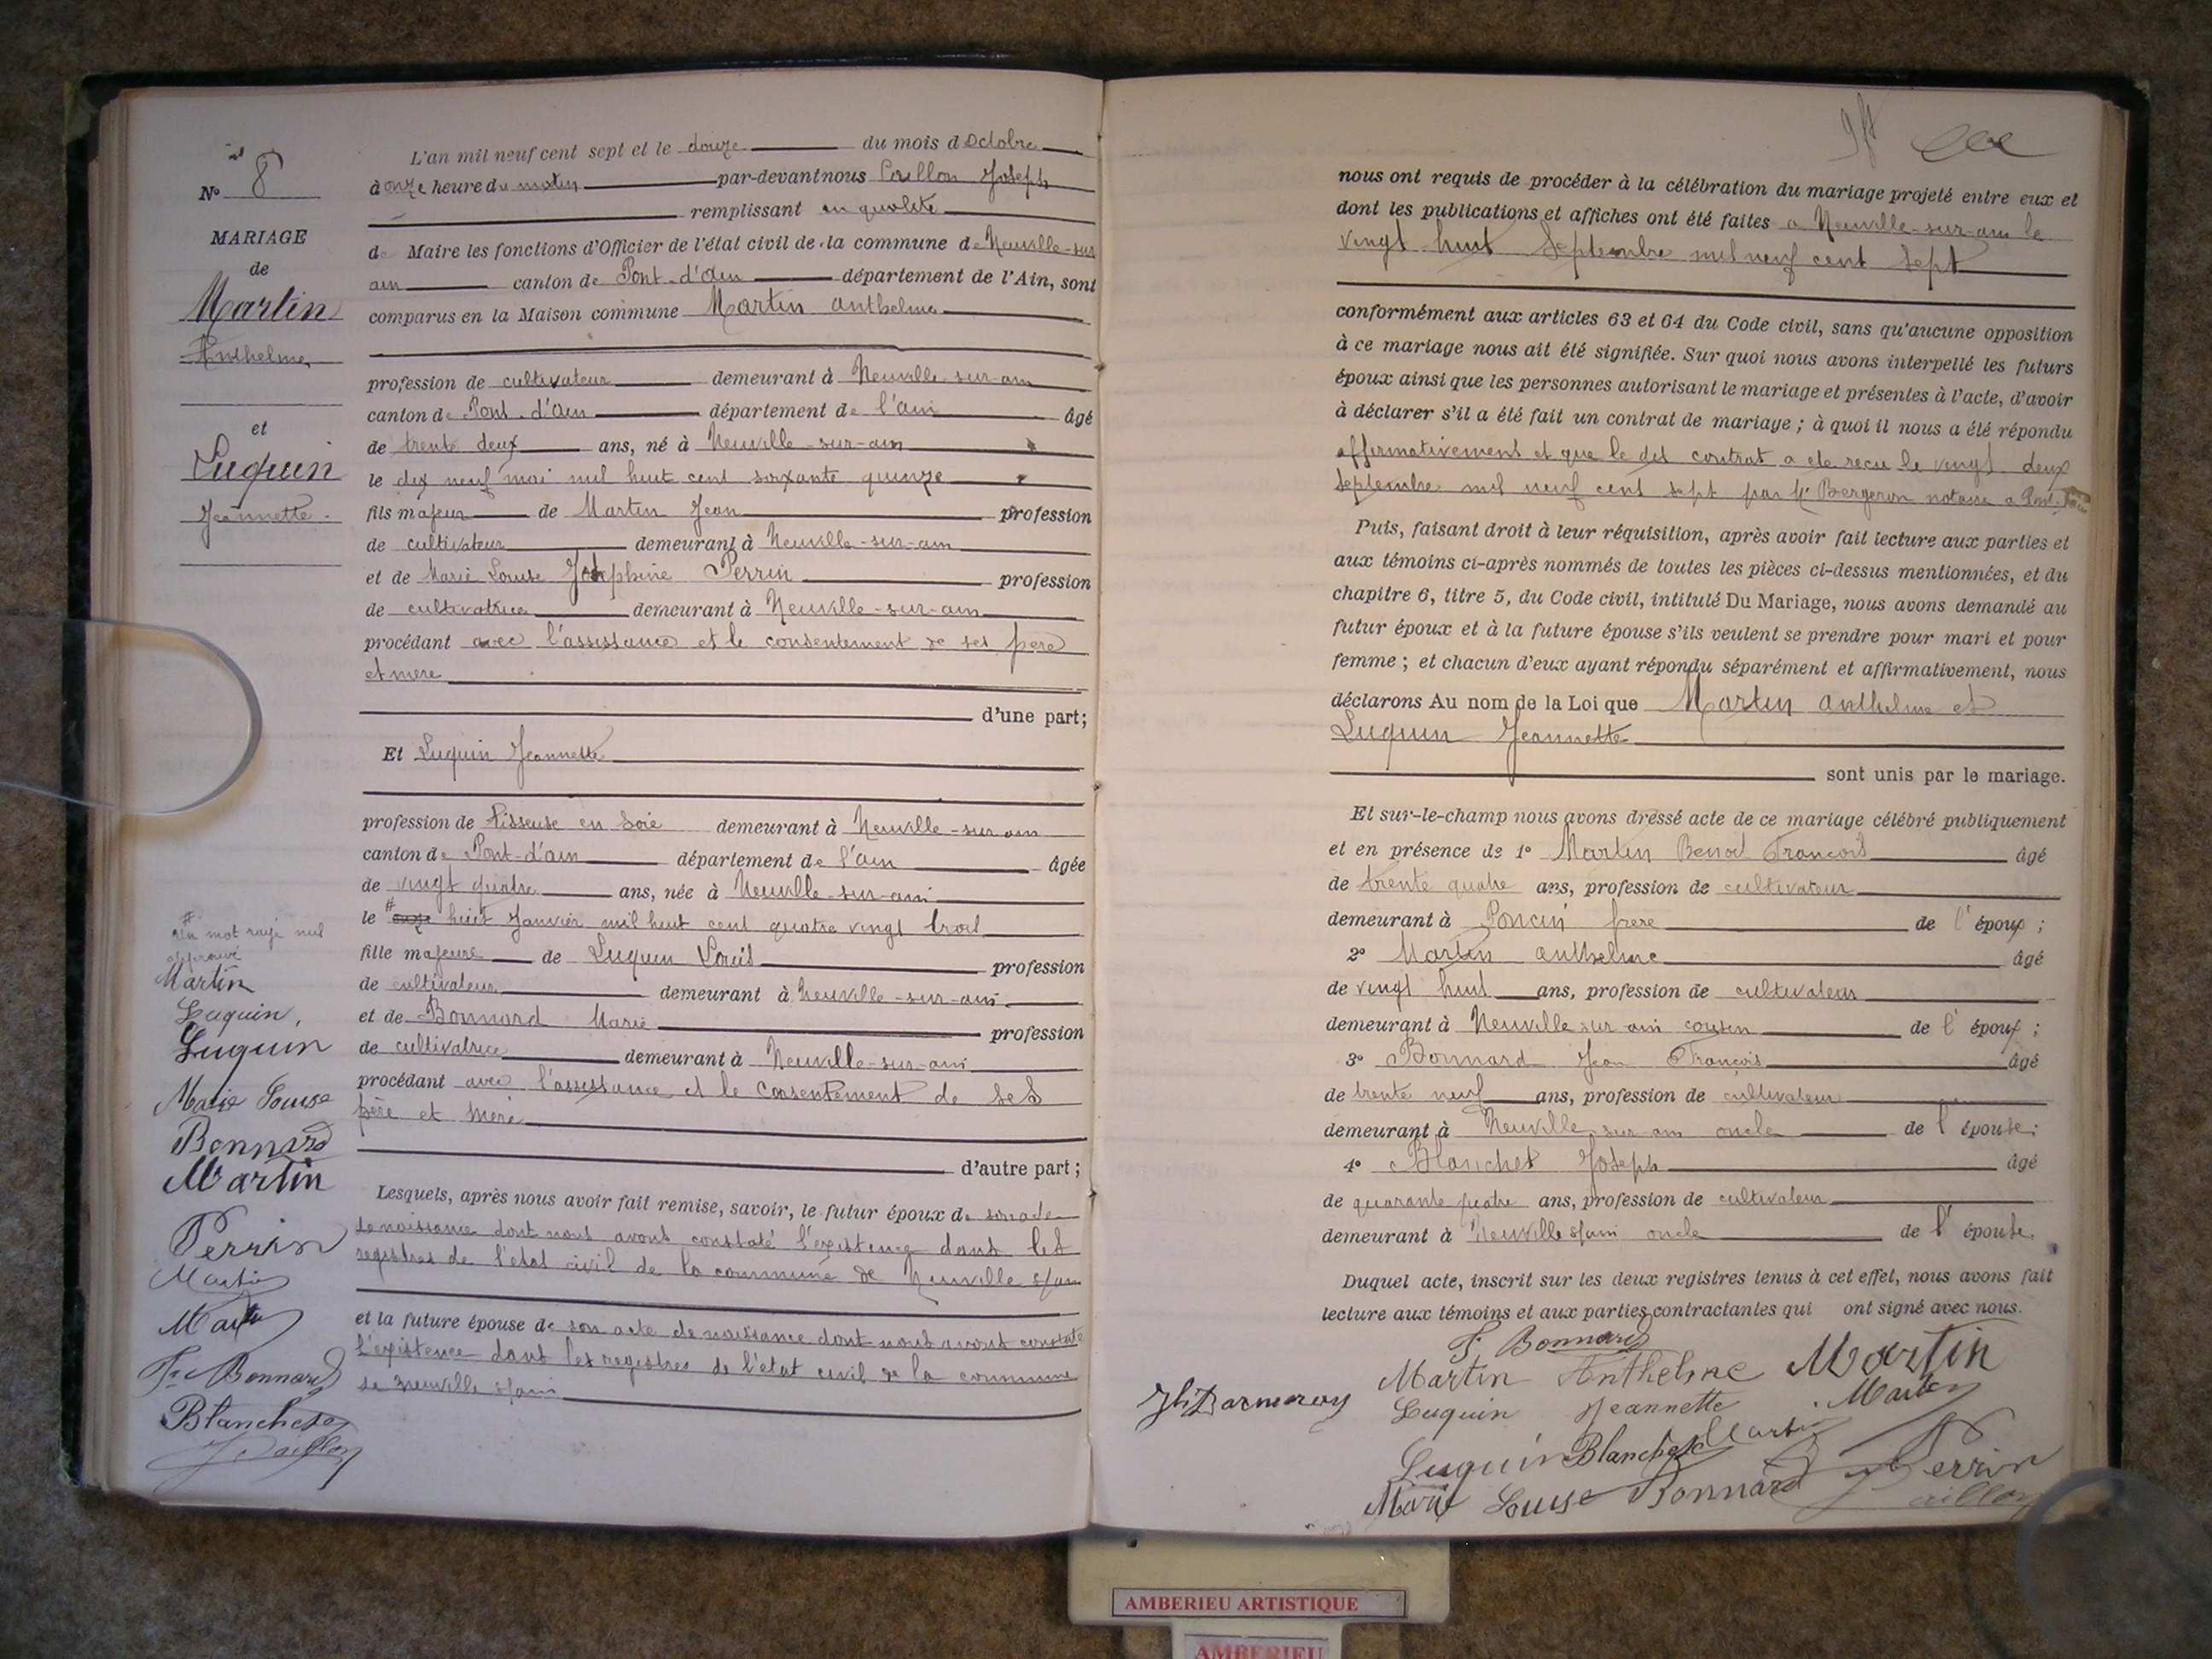 N° 8
MARIAGE
de
Martin
Anthelme
et
Luquin
Jeannette
L'an mil neuf cent sept et le douze du mois d Octobre
à onze heure du matin par-devant nous Caillon Joseph
remplissant en qualité
de Maire les fonctions d'Officier de l'état civil de la commune de Neuville-sur
ain canton de Pont-d'ain département de l'Ain, sont
comparus en la Maison commune Martin anthelme
profession de cultivateur demeurant à Neuville-sur-ain
canton de Pont-d'ain département de l'ain âgé
de trente deux ans, né à Neuville-sur-ain
le dix neuf mai mil huit cent soixante quinze
fils majeur de Martin Jean profession
de cultivateur demeurant à Neuville-sur-ain
et de Marie Louise Josephine Perrin profession
de cultivatrice demeurant à Neuville-sur-ain
procédant avec l'assistance et le consentement de ses père
et mère
d'une part;
Et Luquin Jeannette
profession de tisseuse en soie demeurant à Neuville-sur ain
canton de Pont-d'ain département de l'ain âgée
de vingt quatre ans, née à Neuville-sur-ain
le # onze huit Janvier mil huit cent quatre vingt trois
fille majeure de Luquin Louis profession
de cultivateur demeurant à Neuville-sur-ain
et de Bonnard Marie profession
de cultivatrice demeurant à Neuville-sur-ain
procédant avec l'assistance et le consentement de ses
père et mère
d'autre part;
Lesquels, après nous avoir fait remise, savoir, le futur époux de son acte
de naissance dont nous avons constaté l'existence dans les
registres de l'état civil de la commune de Neuville s/ain
et la future épouse de son acte de naissance dont nous avons constaté
l'existence dans les registres de l'état civil de la commune
de Neuville s/ain
# un mot rayé nul
approuvé
Martin
Luquin,
Luquin
Marie Louise
Bonnard
Martin
Perrin
Martin
Martin
F. Bonnard
Blanchet
J. Caillon
nous ont requis de procéder à la célébration du mariage projeté entre eux et
dont les publications et affiches ont été faites a Neuville-sur-ain le
vingt huit Septembre mil neuf cent sept
conformément aux articles 63 et 64 du Code civil, sans qu'aucune opposition
à ce mariage nous ait été signifiée. Sur quoi nous avons interpellé les futurs
époux ainsi que les personnes autorisant le mariage et présentes à l'acte, d'avoir
à déclarer s'il a été fait un contrat de mariage; à quoi il nous a été répondu
affirmativement et que le dit contrat a ete recu le vingt deux
septembre mil neuf cent sept par Me Bergeron notaire a Pont d'ain
Puis, faisant droit à leur réquisition, après avoir fait lecture aux parties et
aux témoins ci-après nommés de toutes les pièces ci-dessus mentionnées, et du
chapitre 6, titre 5, du Code civil, intitulé Du Mariage, nous avons demandé au
futur époux et à la future épouse s'ils veulent se prendre pour mari et pour
femme; et chacun d'eux ayant répondu séparément et affirmativement, nous
déclarons Au nom de la Loi que Martin Anthelme et
Luquin Jeannette
sont unis par le mariage.
Et sur-le-champ nous avons dressé acte de ce mariage célébré publiquement
et en présence de 1° Martin Benoit François âgé
de trente quatre ans, profession de cultivateur
demeurant à Poncin frere de l'époux;
2° Martin anthelme âgé
de vingt huit ans, profession de cultivateur
demeurant à Neuville sur ain cousin de l'époux;
3° Bonnard Jean François âgé
de trente neuf ans, profession de cultivateur
demeurant à Neuville sur ain oncle de l'épouse;
4° Blanchet Joseph âgé
de quarante quatre ans, profession de cultivateur
demeurant à Neuville s/ain oncle de l'épouse.
Duquel acte, inscrit sur les deux registres tenus à cet effet, nous avons fait
lecture aux témoins et aux parties contractantes qui ont signé avec nous.
F. Bonnard
Martin Anthelme Martin
Luquin Jeannette Martin
Luquin Blanchet Martin
Marie Louise Bonnard Perrin
J. Caillon
AMBERIEU ARTISTIQUE
AMBERIEU